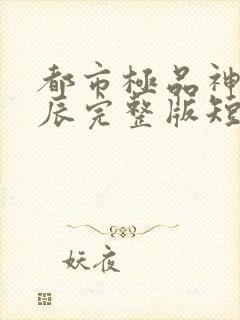 都市極品神
辰完整版短
妖夜